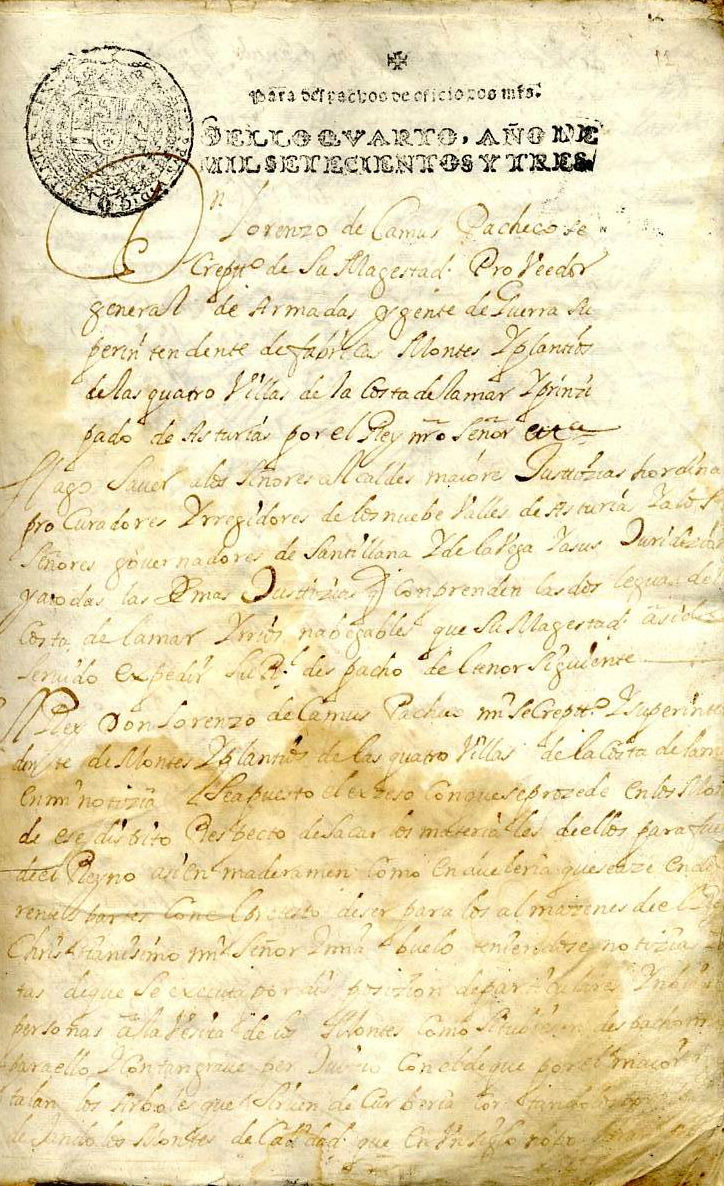 Para despachos de oficio dos mrs.
SELLO QVARTO, AÑO DE
MIL SETECIENTOS Y TRES
Dn Lorenzo de Camus Pacheco Se
Creptro de Su Magestad. Proveedor
general de Armadas y gente de Guerra Su
perin tendente de fabricas Montes Y plantios
de las quatro Villas de la Costa de la mar Y prinzi
pado de Asturias por el Rey nro Señor
Hago Saver a los Señores Alcaldes maiores Justizias hordina
pro Curadores Y rregidores de los nuebe Valles de Asturia Ya los
Señores governadores de Santillana Y de la Vega Y a sus
y a todas las Demas Justizias q Comprenden las dos leguas de
Costa de la mar Y rrios nabegables que Su Magestad a sido
Seruido expedir Su Rl despacho del tenor Siguiente
El Rey Don Lorenzo de Camus Pacheco mi Secreptro Y superinten
dente de Montes Y plantios de las quatro Villas de la Costa de la mar
en mi notizia Sea puesto el exzeso con que se prozede en los Mon
de ese distrito Respecto de sacar los materiales de ellos para fue
de el Reyno asi en maderamen como en dueleria que se aze en di
rentes partes Con el pretesto de ser para los almazenes de el Re
Christianisimo mi Señor Y mi Abuelo teniendose notizias
tas de que Se executa por disposizion de particulares Y
personas a la Visita de los Montes como Si tubiesen despacho
para ello Y Con tan grave per Juizio Con el de que por el maior
talan los Arboles que Siruen de Curberia
dejando los Montes de Calidad que en Un Siglo no